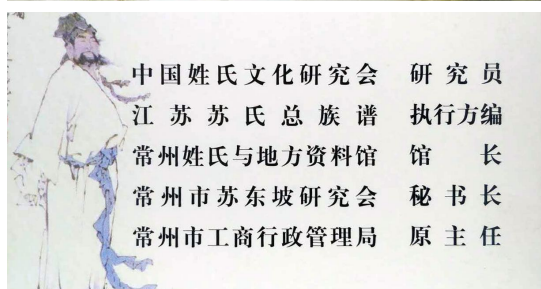 中国姓氏文化研究会 研究员
江苏苏氏总族谱 执行方编
常州姓氏与地方资料馆 馆长
常州市苏东坡研究会 秘书长
常州市工商行政管理局 原主任